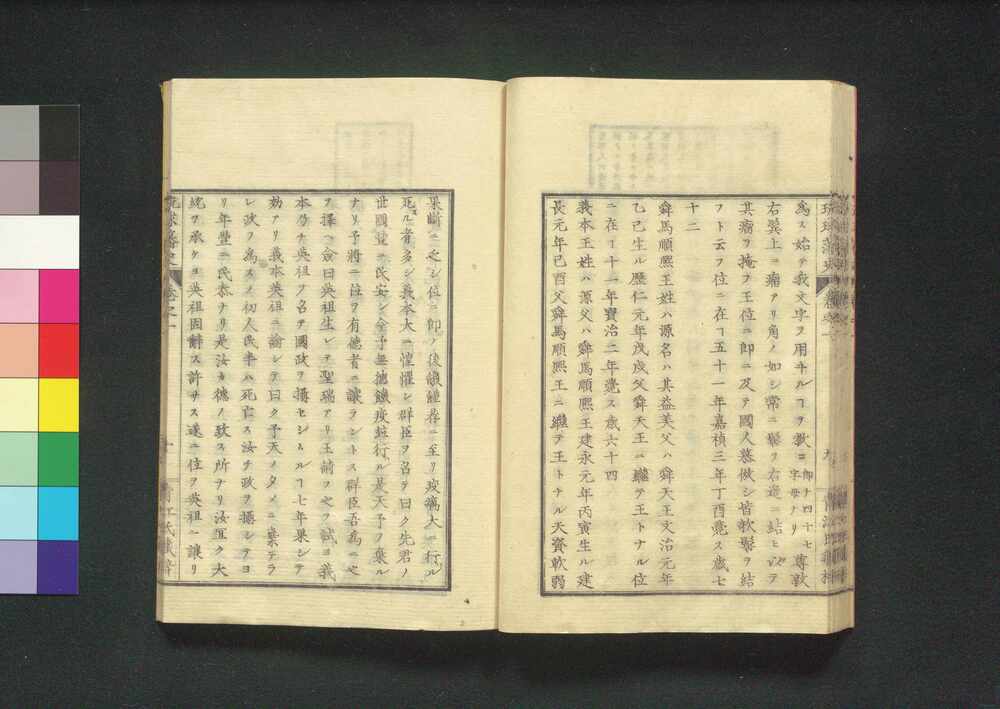 琉球藩史 卷之一
爲ス始テ我文字ヲ用ヰルヿヲ敎ユ即チ四十七字母ナリ尊敦
右鬢上ニ瘤アリ角ノ如シ常ニ髮ヲ右邉ニ結ヒ以テ
其瘤ヲ掩フ王位ニ卽ニ及テ國人慕傚シ皆欹髻ヲ結
フト云フ位ニ在ヿ五十一年嘉禎三年丁酉薨ス歳七
十二
舜馬順熙王姓ハ源名ハ其益美父ハ舜天王文治元年
乙巳生ル歷仁元年戊戌父舜天王ニ繼テ王トナル位
ニ在ヿ十一年寶治二年薨ス歳六十四
義本王姓ハ源父ハ舜馬順熙王建永元年丙寅生ル建
長元年己酉父舜馬順熙王ニ繼テ王トナル天資軟弱
果斷ニ乏シ位ニ卽ノ後饑饉荐ニ至リ疫癘大ニ行ル
死ル者多シ義本大ニ惶懼シ群臣ヲ名テ曰ク先君ノ
世國豐ニ民安シ今予無德饑疫並行ル是天予ヲ棄ル
ナリ予將ニ位ヲ有德者ニ讓ラントス群臣吾爲ニ之
ヲ擇ヘ僉曰英祖生レテ聖瑞アリ王請フ之ヲ試ヨ義
本乃チ英祖ヲ名テ國政ヲ攝セシムルヿ七年果シテ
効アリ義本英祖ニ諭シテ曰ク予天ノタメニ棄テラ
レ政ヲ爲スノ初人民半ハ死亡ス汝チ政ヲ攝シテヨ
リ年豐ニ民恭ナリ是汝カ德ノ致ス所ナリ汝宜ク大
統ヲ承クヨ英祖固辭ス許サス遂ニ位ヲ英祖ニ讓リ
琉球藩史 卷之一